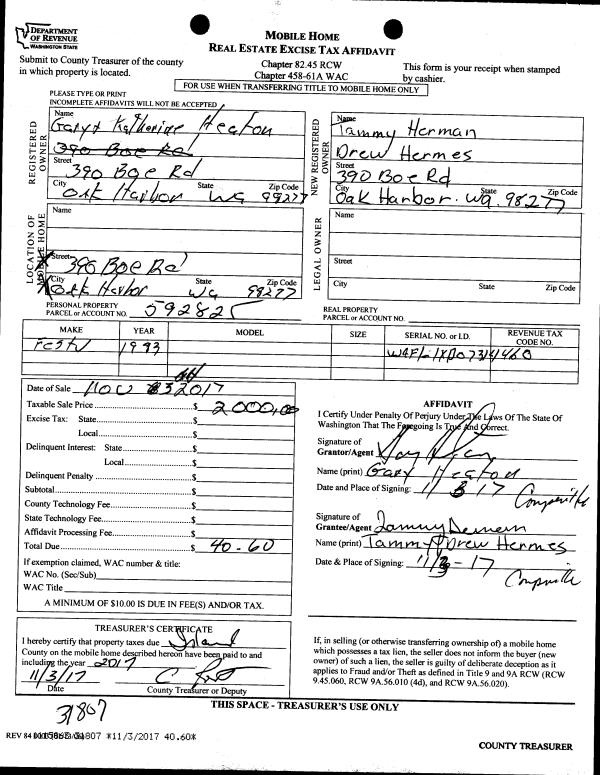 DEPARTMENT
OF REVENUE
WASHINGTON STATE
MOBILE HOME
REAL ESTATE EXCISE TAX AFFIDAVIT
Submit to County Treasurer of the county
in which property is located.
Chapter 82.45 RCW
Chapter 458-61A WAC
This form is your receipt when stamped
by cashier.
FOR USE WHEN TRANSFERRING TITLE TO MOBILE HOME ONLY
PLEASE TYPE OR PRINT
INCOMPLETE AFFIDAVITS WILL NOT BE ACCEPTED
REGISTERED
OWNER
Name
Gary & Katherine Heaton
390 Boe Rd
Street
390 Boe Rd
City State Zip Code
Oak Harbor Wa 98277
NEW REGISTERED
OWNER
Name
Tammy Herman
Drew Hermes
Street
390 Boe Rd
City State Zip Code
Oak Harbor. Wa. 98277
LOCATION OF
MOBILE HOME
Name
Street
390 Boe Rd
City State Zip Code
Oak Harbor Wa 98277
LEGAL OWNER
Name
Street
City State Zip Code
PERSONAL PROPERTY
PARCEL or ACCOUNT NO. 59282
REAL PROPERTY
PARCEL or ACCOUNT NO.
MAKE YEAR MODEL SIZE SERIAL NO. or I.D. REVENUE TAX
CODE NO.
1993
Date of Sale Nov 3 2017
Taxable Sale Price $ 2000,00
Excise Tax: State $
Local $
Delinquent Interest: State $
Local $
Delinquent Penalty $
Subtotal $
County Technology Fee $
State Technology Fee $
Affidavit Processing Fee $
Total Due $ 40.60
If exemption claimed, WAC number & title:
WAC No. (Sec/Sub)
WAC Title
A MINIMUM OF $10.00 IS DUE IN FEE(S) AND/OR TAX.
AFFIDAVIT
I Certify Under Penalty Of Perjury Under The Laws Of The State Of
Washington That The Foregoing Is True And Correct.
Signature of
Grantor/Agent
Name (print) Gary Heaton
Date and Place of Signing: 11 3 17 Coupeville
Signature of
Grantee/Agent
Name (print) Tammy Drew Hermes
Date & Place of Signing: 11/3-17
Coupeville
TREASURER'S CERTIFICATE
I hereby certify that property taxes due Island
County on the mobile home described hereon have been paid to and
including the year 2017
11/3/17
Date County Treasurer or Deputy
If, in selling (or otherwise transferring ownership of) a mobile home
which possesses a tax lien, the seller does not inform the buyer (new
owner) of such a lien, the seller is guilty of deliberate deception as it
applies to Fraud and/or Theft as defined in Title 9 and 9A RCW (RCW
9.45.060, RCW 9A.56.010 (4d), and RCW 9A.56.020).
THIS SPACE - TREASURER'S USE ONLY
31807
REV 84 31807 *11/3/2017 40.60*
COUNTY TREASURER